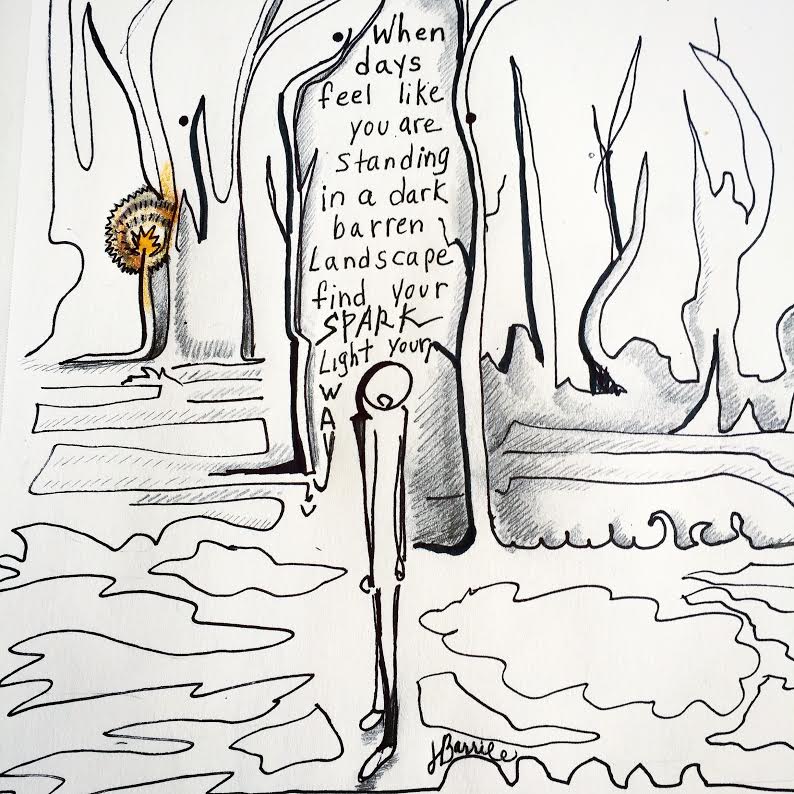 When
days
feel like
you are
standing
in a dark
barren
Landscape
find your
SPARK
Light your
WAY
J Barrile